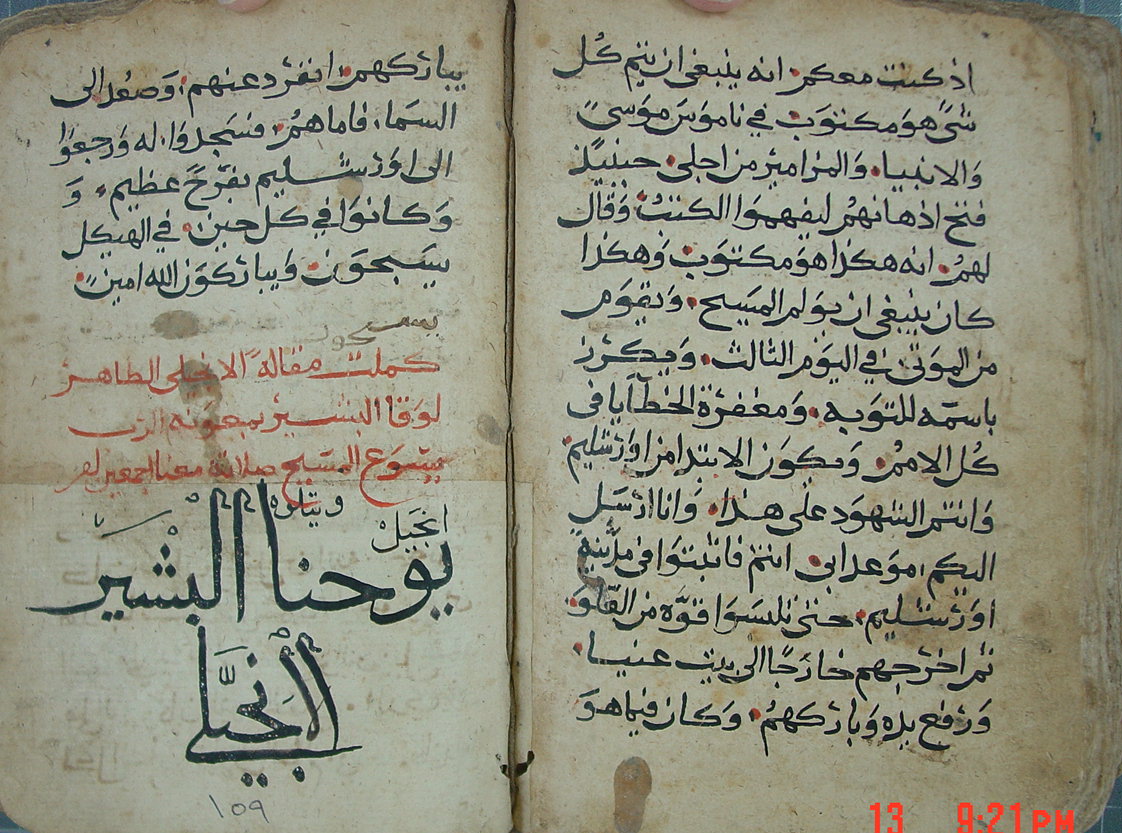 اذ كنت معكم. انه ينبغى ان يتم كل
شى هو مكتوب في ناموس موسى
والانبيا. والمزامير من اجلى. حينيذ
فتح اذهانهم ليفهموا الكتب وقال
لهم. انه هكذا هو مكتوب وهكذا
كان ينبغى ان يولم المسيح. ويقوم
من الموتى في اليوم الثالث. ويكرز
باسمه للتوبه. ومغفرة الخطايا فى
كل الامم. ويكون الابتدا من اورشليم
وانتم الشهود على هذا. وانا ارسل
اليكم. موعد ابى انتم فاثبتوا فى مدينة
اورشليم. حتى تلبسوا قوه من العلو.
ثم اخرجهم خارجا الى بيت عنيا.
ورفع يده وباركهم. وكان فيما هو
يباركهم. انفرد عنهم. وصعد الى
السما. فاما هم. فسجدوا. له ورجعوا
الى اورشليم بفرح عظيم. و
وكانوا في كل حين. في الهيكل
يسبحون ويباركون الله امين.
يسبحون
كملت مقالة الانجيلى الطاهر
لوقا البشير بمعونه الرب
يسوع المسيح صلاته معنا اجمعين
ويتلوه
انجيل
يوحنا البشير
الانجيلى
١٥٩
13 9:21 PM